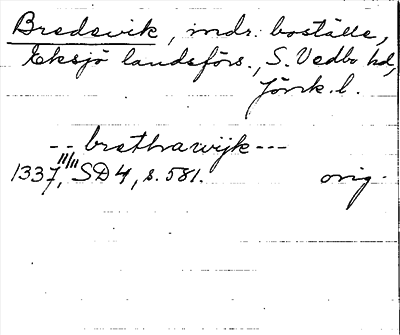 Bredevik, mdr. boställe,
Eksjö landsförs., S. Vedbo hd,
Jönk. l.
-- brethawijk ---
1337 11/11, SD 4, s. 581. orig.